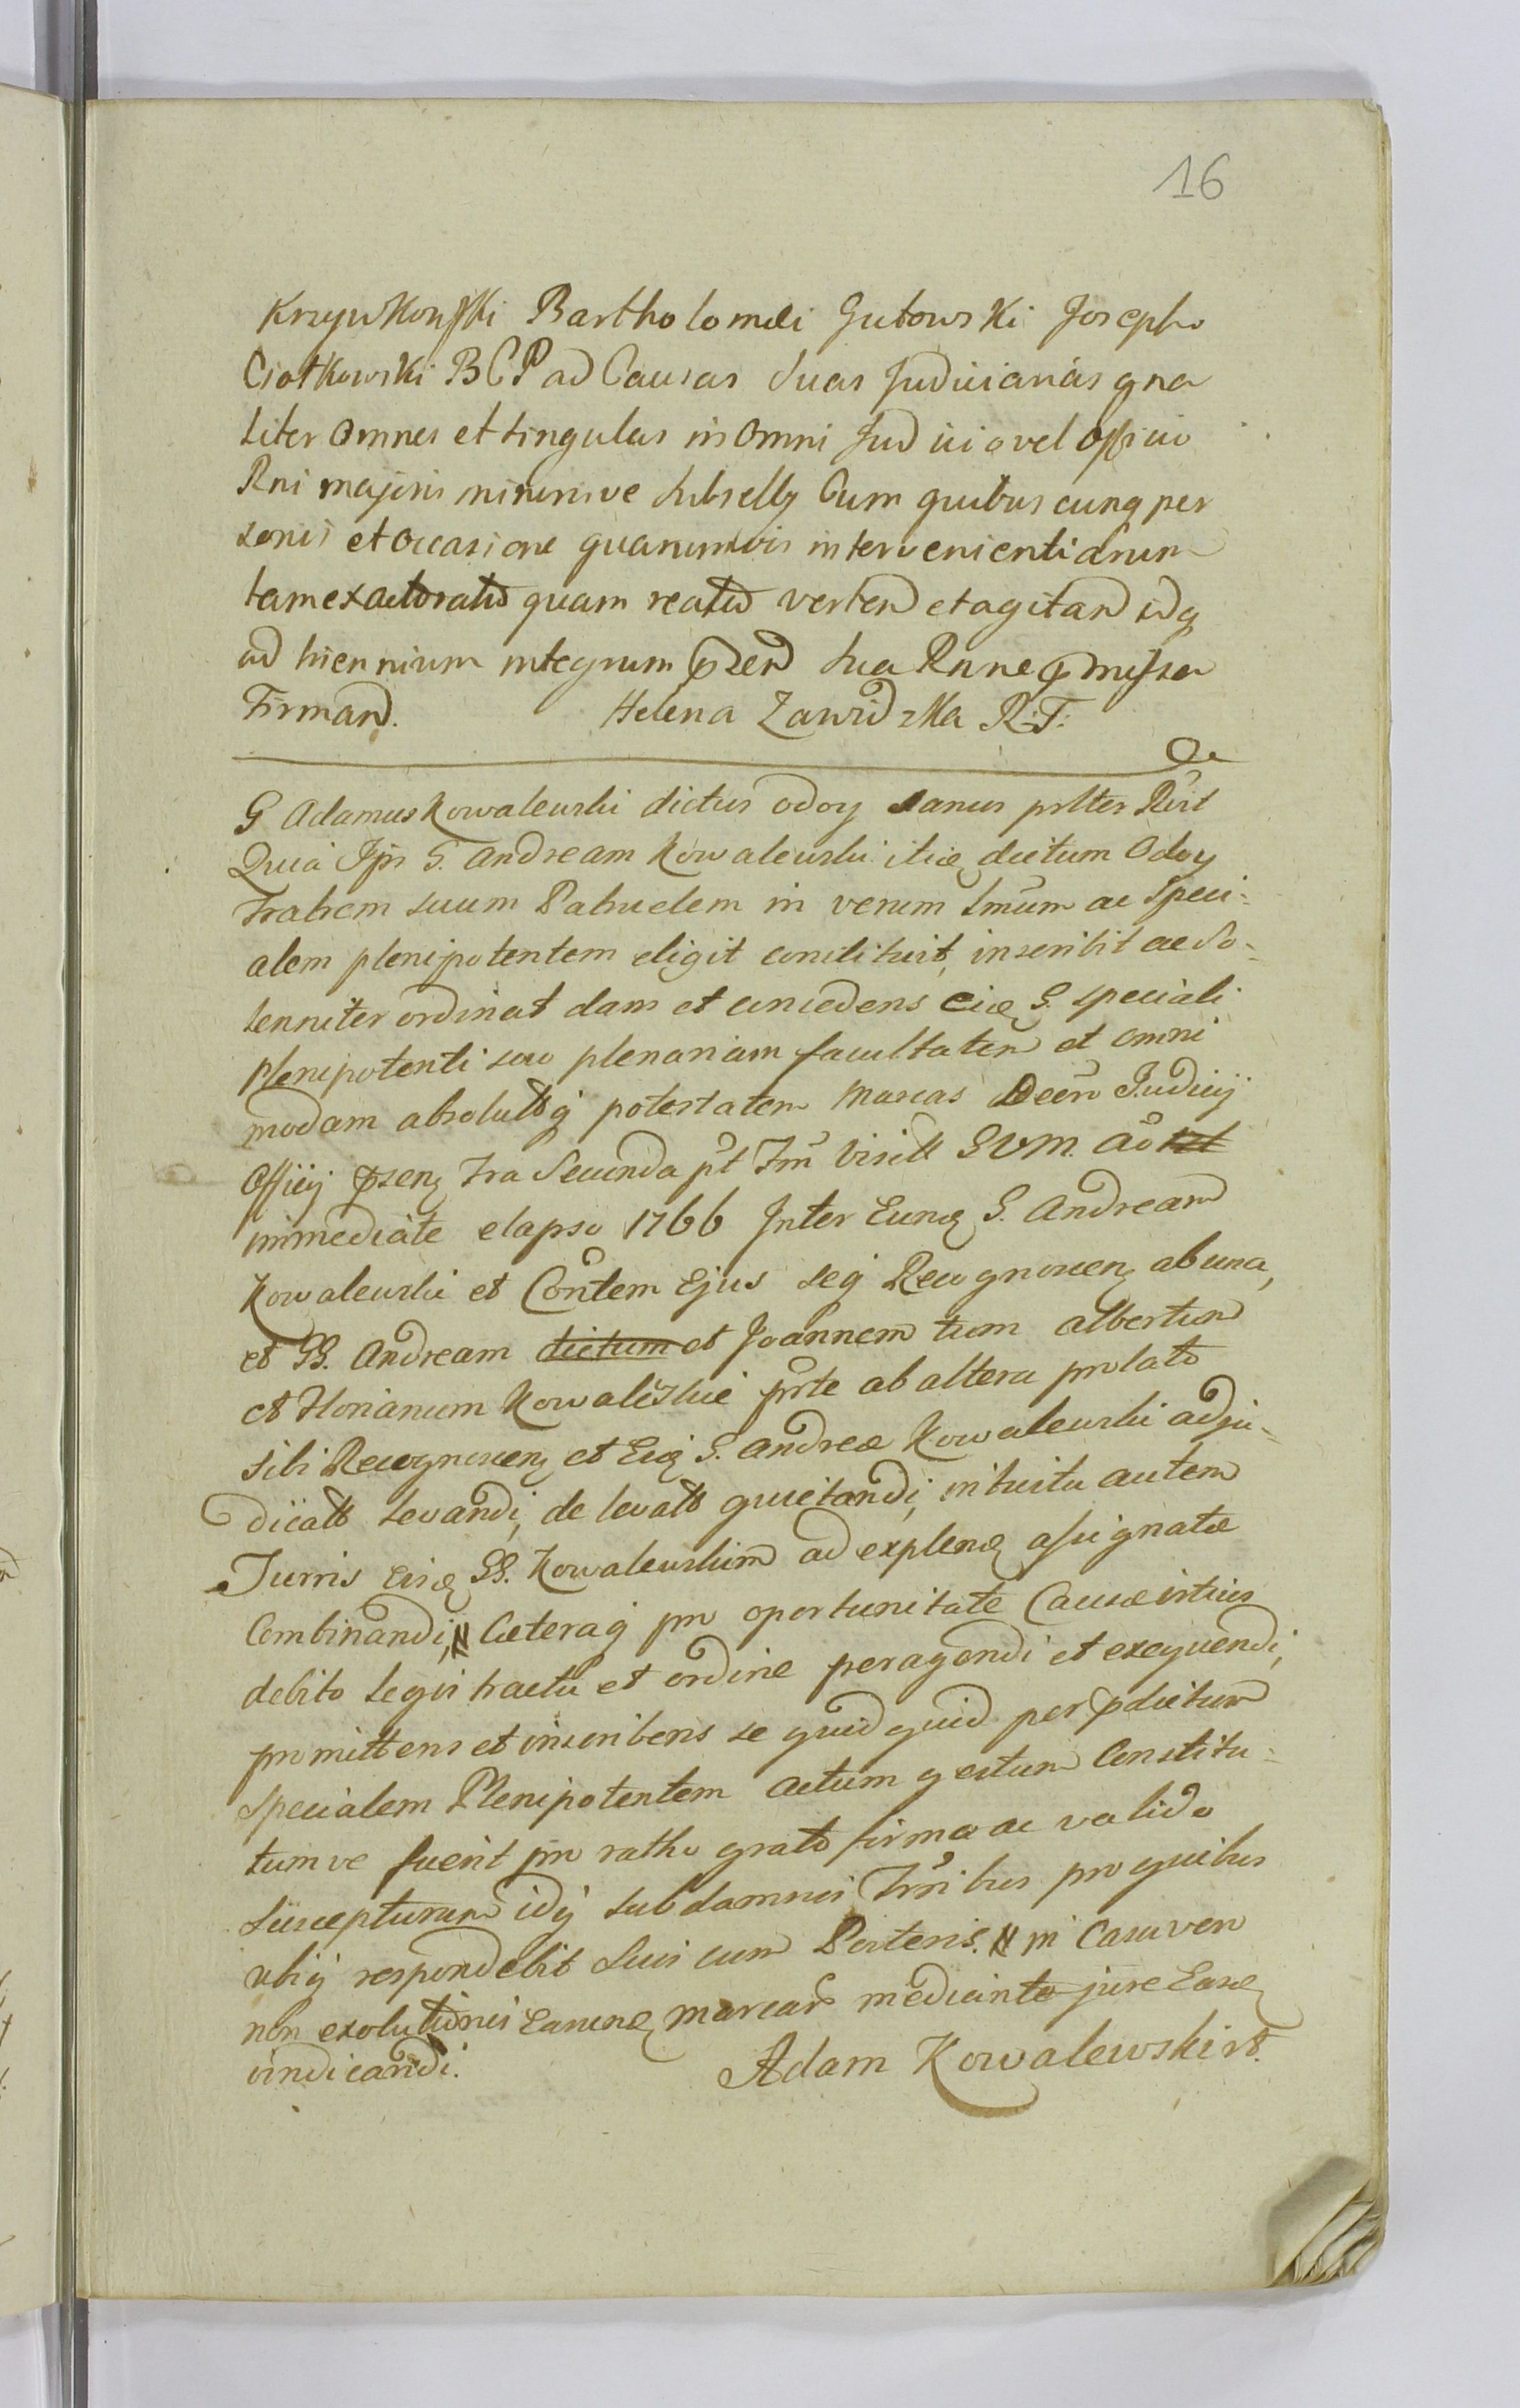 16
Krzywkowski Bartholomæi Gutowski Josepho
Ciołkowski BCP ad Causas Suas Judiciarias gna
liter omnes et singulas in Omni Judicio vel Officio
Rni majoris minorisve Subselly Cum quibus cunq per
sonis et Occasione quarumvis intervenientiarum
tam ex actoratu quam reatu verten et agitan idq
ad triennium integrum prsen sua Rnne prmissa
Firman. Helena Zawidzka R: T:
G Adamus Kowalewski dictus Odoy sanus prltes Rést
Quia Ips G. Andream Kowalewski itiɋ dictum Odoy
Fratrem suum Patruelem in verum lmum ac Speci-
alem plenipotentem eligit constituit, inscribit ac So-
lenniter ordinat dans et concedens eiɋ G. speciali
plenipotenti suo plenariam facultatem et omni
modam absolutɋ potestatem Marcas Decro Judicij
Officij prsenɋ Fra Secunda pt Fm Visitt BVM. Ao
immediate elapso 1766 Inter Eunɋ G. Andream
Kowalewski et Contem Ejus seɋ Recognoscenɋ ab una,
et GG. Andream dictum et Joannem tum Albertum
et Florianum Kowalewskie prte ab altera prolato
sibi Recognoscenɋ et Eiɋ G. Andreæ Kowalewski adju-
dicatt levandi, de levatt quietandi, intuitu autem
Jurris eisɋ GG. Kowalewskim ad explenɋ assignatæ
Combinandi, N Cæteraɋ pro oportunitate Causæ istius
debito legis tractu et ordine peragendi et exequendi,
promittens et inscribens se quidquid per prdictum
Specialem Plenipotentem actum gestum Constitu-
tumve fuerit pro ratho grato firmo ac valido
suscepturum idɋ sub damnis Trribus pro quibus
ubiɋ respondebit Suis cum Posteris. N in Casu vero
non exolutionis Earunɋ marcar mediante jure Easɋ
vindicandi. Adam Kowalewski rt.